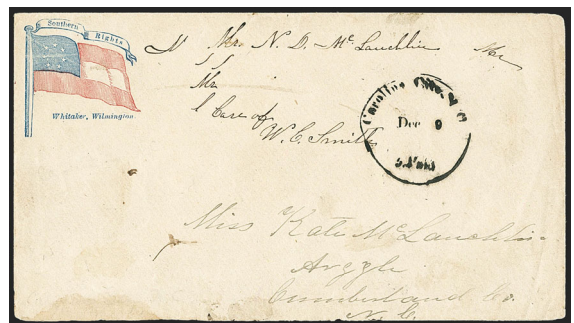 Southern Rights
Whitaker, Wilmington.
Mr. N. D. McLauchlin
Mr
Care of
W. C. Smith
Carolina City, N.C.
Dec 9
5 Paid
Miss Kate McLauchlin
Argyle
Cumberland Co.
N. C.